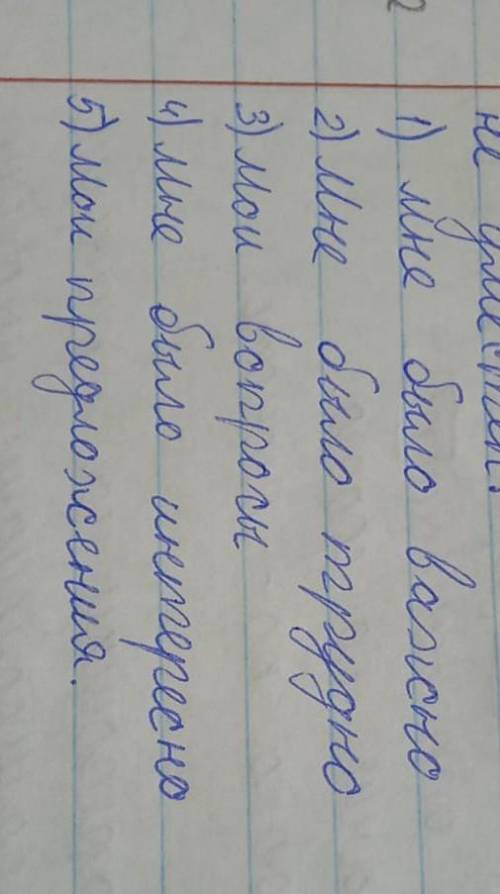 не уместен.
1) Мне было важно
2) Мне было трудно
3) Мои вопросы
4) Мне было интересно
5) Мои предложения.